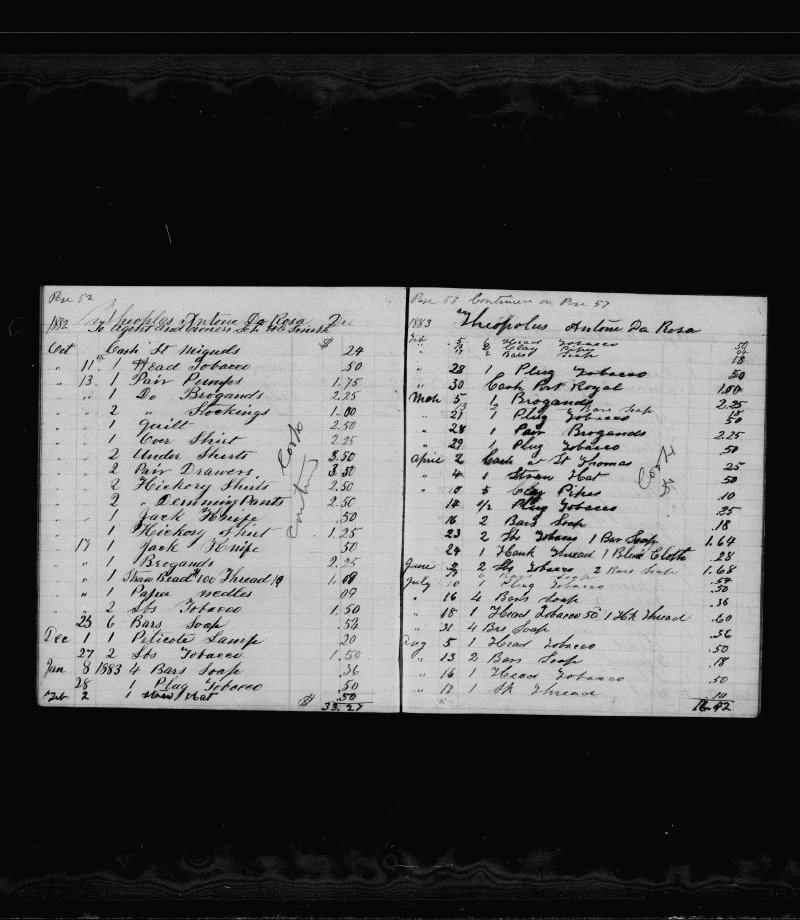 Page 52
1882 Theoplus Antone Da Rosa Dr
To Agent and Owners Sch.
Oct Cash St Miguels $ 24
" 11 1 Head Tobacco 50
" 13 1 Pair Pumps 1.75
" " 1 Do Brogands 2.25
" " 2 " Stockings 1.00
" " 1 Quilt 2.50
" " 1 Over Shirt 2.25
" " 2 Under Shirts 3.50
" " 2 Pair Drawers 3.50
" " 2 Hickory Shirts 2.50
" " 2 " Demming Pants 2.50
" " 1 Jack Knife .50
" " 1 Hickory Shirt 1.25
" 17 1 Jack Knife 50
" " 1 Brogands 2.25
" " 1 Straw Bead 100 Thread 1.09
" " 1 Paper needles 09
" " 2 Lbs Tobacco 1.50
" 25 6 Bars Soap .54
Dec 1 1 Pelicote Lamp 20
" 27 2 Lbs Tobacco 1.50
Jan 8 1883 4 Bars Soap .36
" 28 1 Plug Tobacco .50
Feb 2 1 Straw Hat .50
$ 33.27
Page 53 Continued on Page 57
1883 Theopolus Antone Da Rosa
Feb 5 Head Tobacco 50
Clay Pipes
2 Bars Soap 18
" 28 1 Plug Tobacco 50
" 30 Cash Port Royal 1.00
Mch 5 1 Brogands 2.25
2 Bars Soap 18
" 21 1 Plug Tobacco 50
" 28 1 Pair Brogands 2.25
" 29 1 Plug Tobacco .50
April 2 Cash at St Thomas 25
" 4 1 Straw Hat 50
" 10 5 Clay Pipes .10
" 14 1/2 Plug Tobacco .25
" 16 2 Bars Soap .18
" 23 2 Lbs Tobacco 1 Bar Soap 1.64
" 24 1 Hank Thread 1 Blue Cloth .28
June 2 2 Lbs Tobacco 2 Bars Soap 1.68
6 Bars Soap .54
July 10 1 Plug Tobacco .50
" 16 4 Bars Soap .36
" 18 1 Head Tobacco 50 1 Hk Thread .60
" 31 4 Brs Soap .36
Aug 5 1 Head Tobacco .50
" 13 2 Bars Soap .18
" 16 1 Head Tobacco .50
" 17 1 Sk Thread .10
16.42